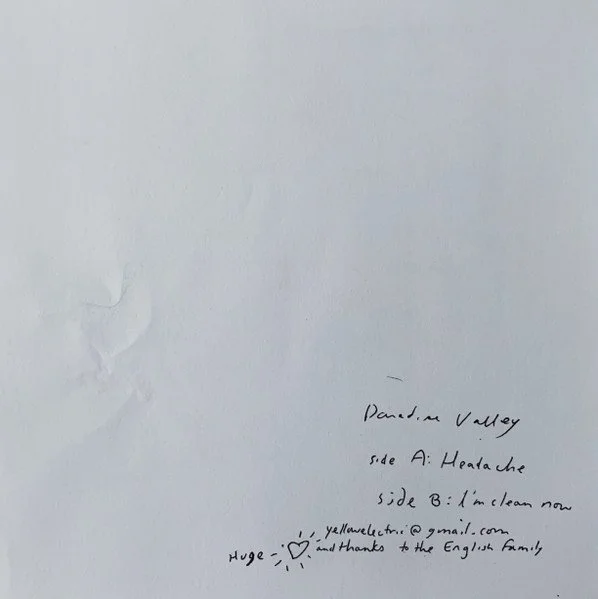 Paradise Valley
side A: Headache
side B: I'm clean now
yellowelectric@gmail.com
Huge and thanks to the English Family